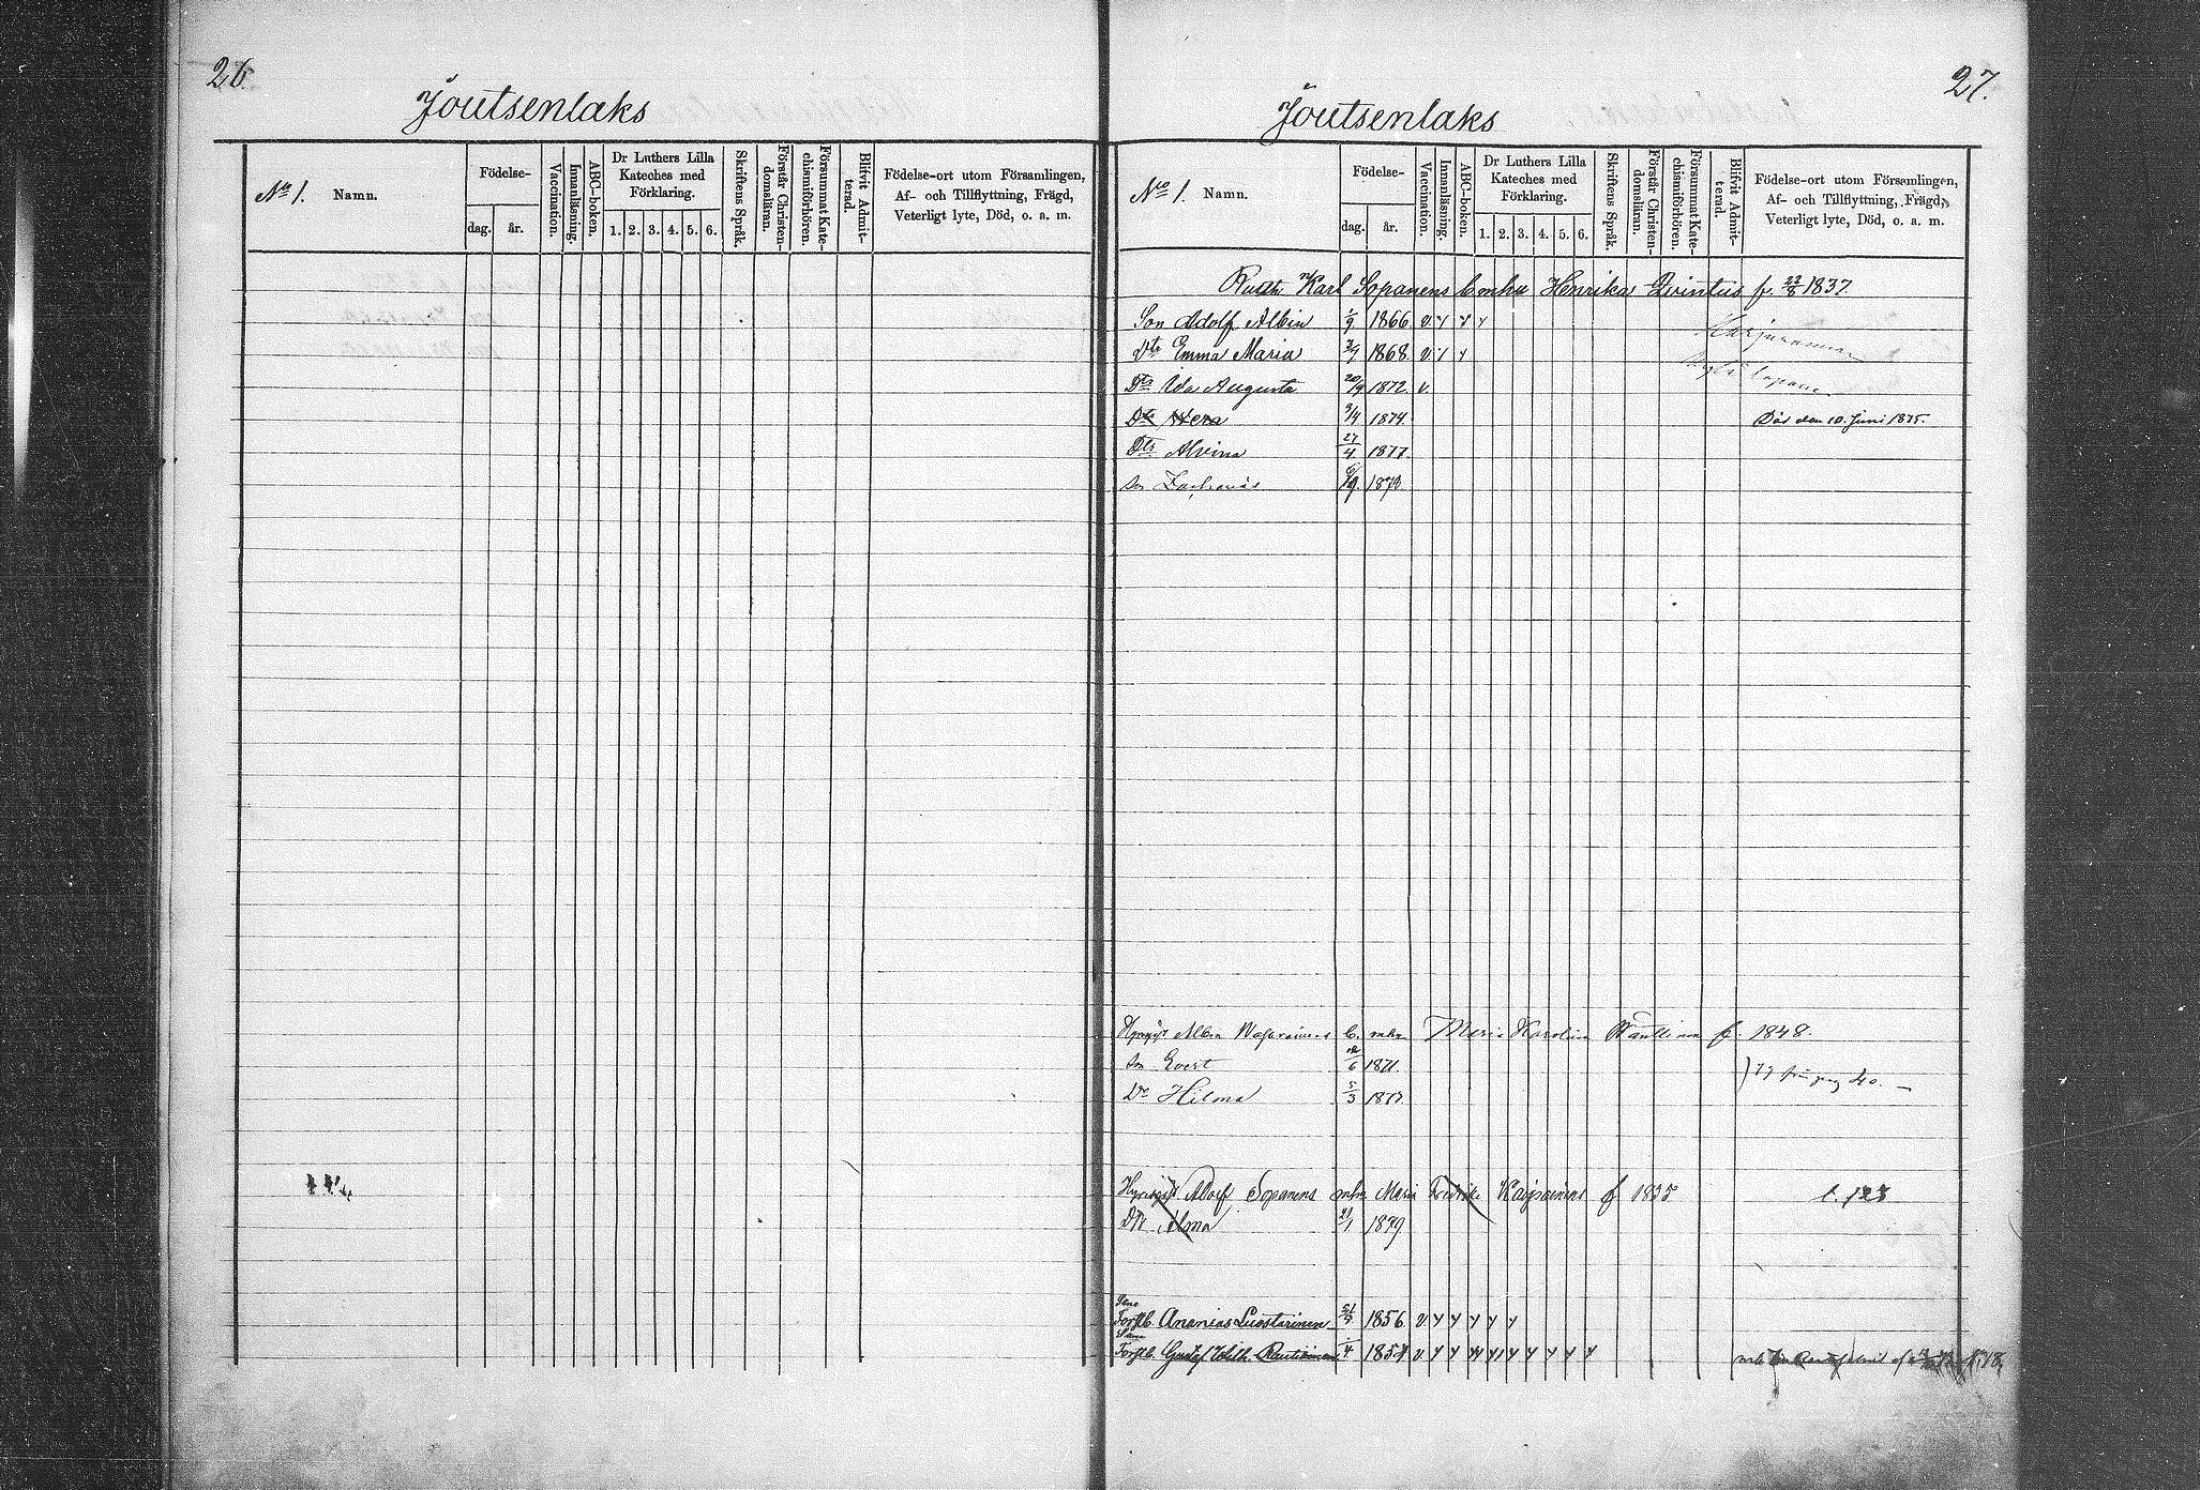 26.
Joutsenlaks
No 1. Namn.
Födelse-
dag. år.
Vaccination.
Innanläsning.
ABC-boken.
Dr Luthers Lilla
Kateches med
Förklaring.
1. 2. 3. 4. 5. 6.
Skriftens Språk.
Förstår Christen-
domsläran.
Försummat Kate-
chismiförhören.
Blifvit Admit-
terad.
Födelse-ort utom Församlingen,
Af- och Tillflyttning, Frägd,
Veterligt lyte, Död, o. a. m.
27.
Joutsenlaks
No 1. Namn.
Födelse-
dag. år.
Vaccination.
Innanläsning.
ABC-boken.
Dr Luthers Lilla
Kateches med
Förklaring.
1. 2. 3. 4. 5. 6.
Skriftens Språk.
Förstår Christen-
domsläran.
Försummat Kate-
chismiförhören.
Blifvit Admit-
terad.
Födelse-ort utom Församlingen,
Af- och Tillflyttning, Frägd,
Veterligt lyte, Död, o. a. m.
Karl Sopanens Enka Henrika Qvintus f. 22/8 1837.
Son Adolf Albin 1/9 1866 v. y y y
Dtr Emma Maria 1868 v. y y
Dtr Ida Augusta 20/9 1872 v.
Dtr Wera 9/4 1874. Död den 10. Juni 1875.
Dtr Alvina 27/4 1877
Son 187
Albin M. Maria Karolina f. 1848.
Son Evert /6 1871.
Dr Hilma 5/3 187 pag 40.
Adolf Sopanens M. Maria f 1835
Dtr Alma 21/1 1879
Ananias Luostarinen 1856 v. y y y y y
Gustaf Wilh. Rautiainen 1/4 185 v y y y y y y y y